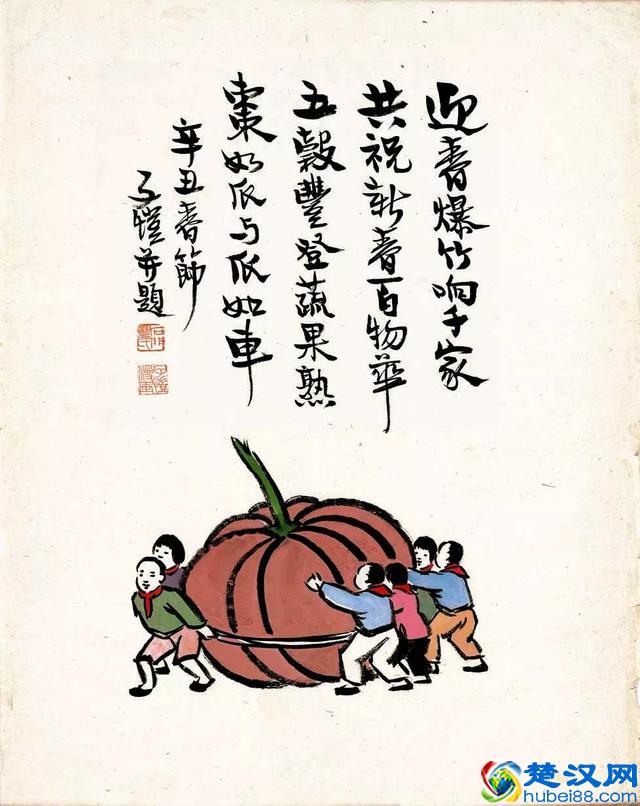 迎春爆竹响千家
共祝新春百物華
五穀豐登蔬果熟
棗如瓜与瓜如車
辛丑春節
子愷并題
楚汉网
hubei88.com